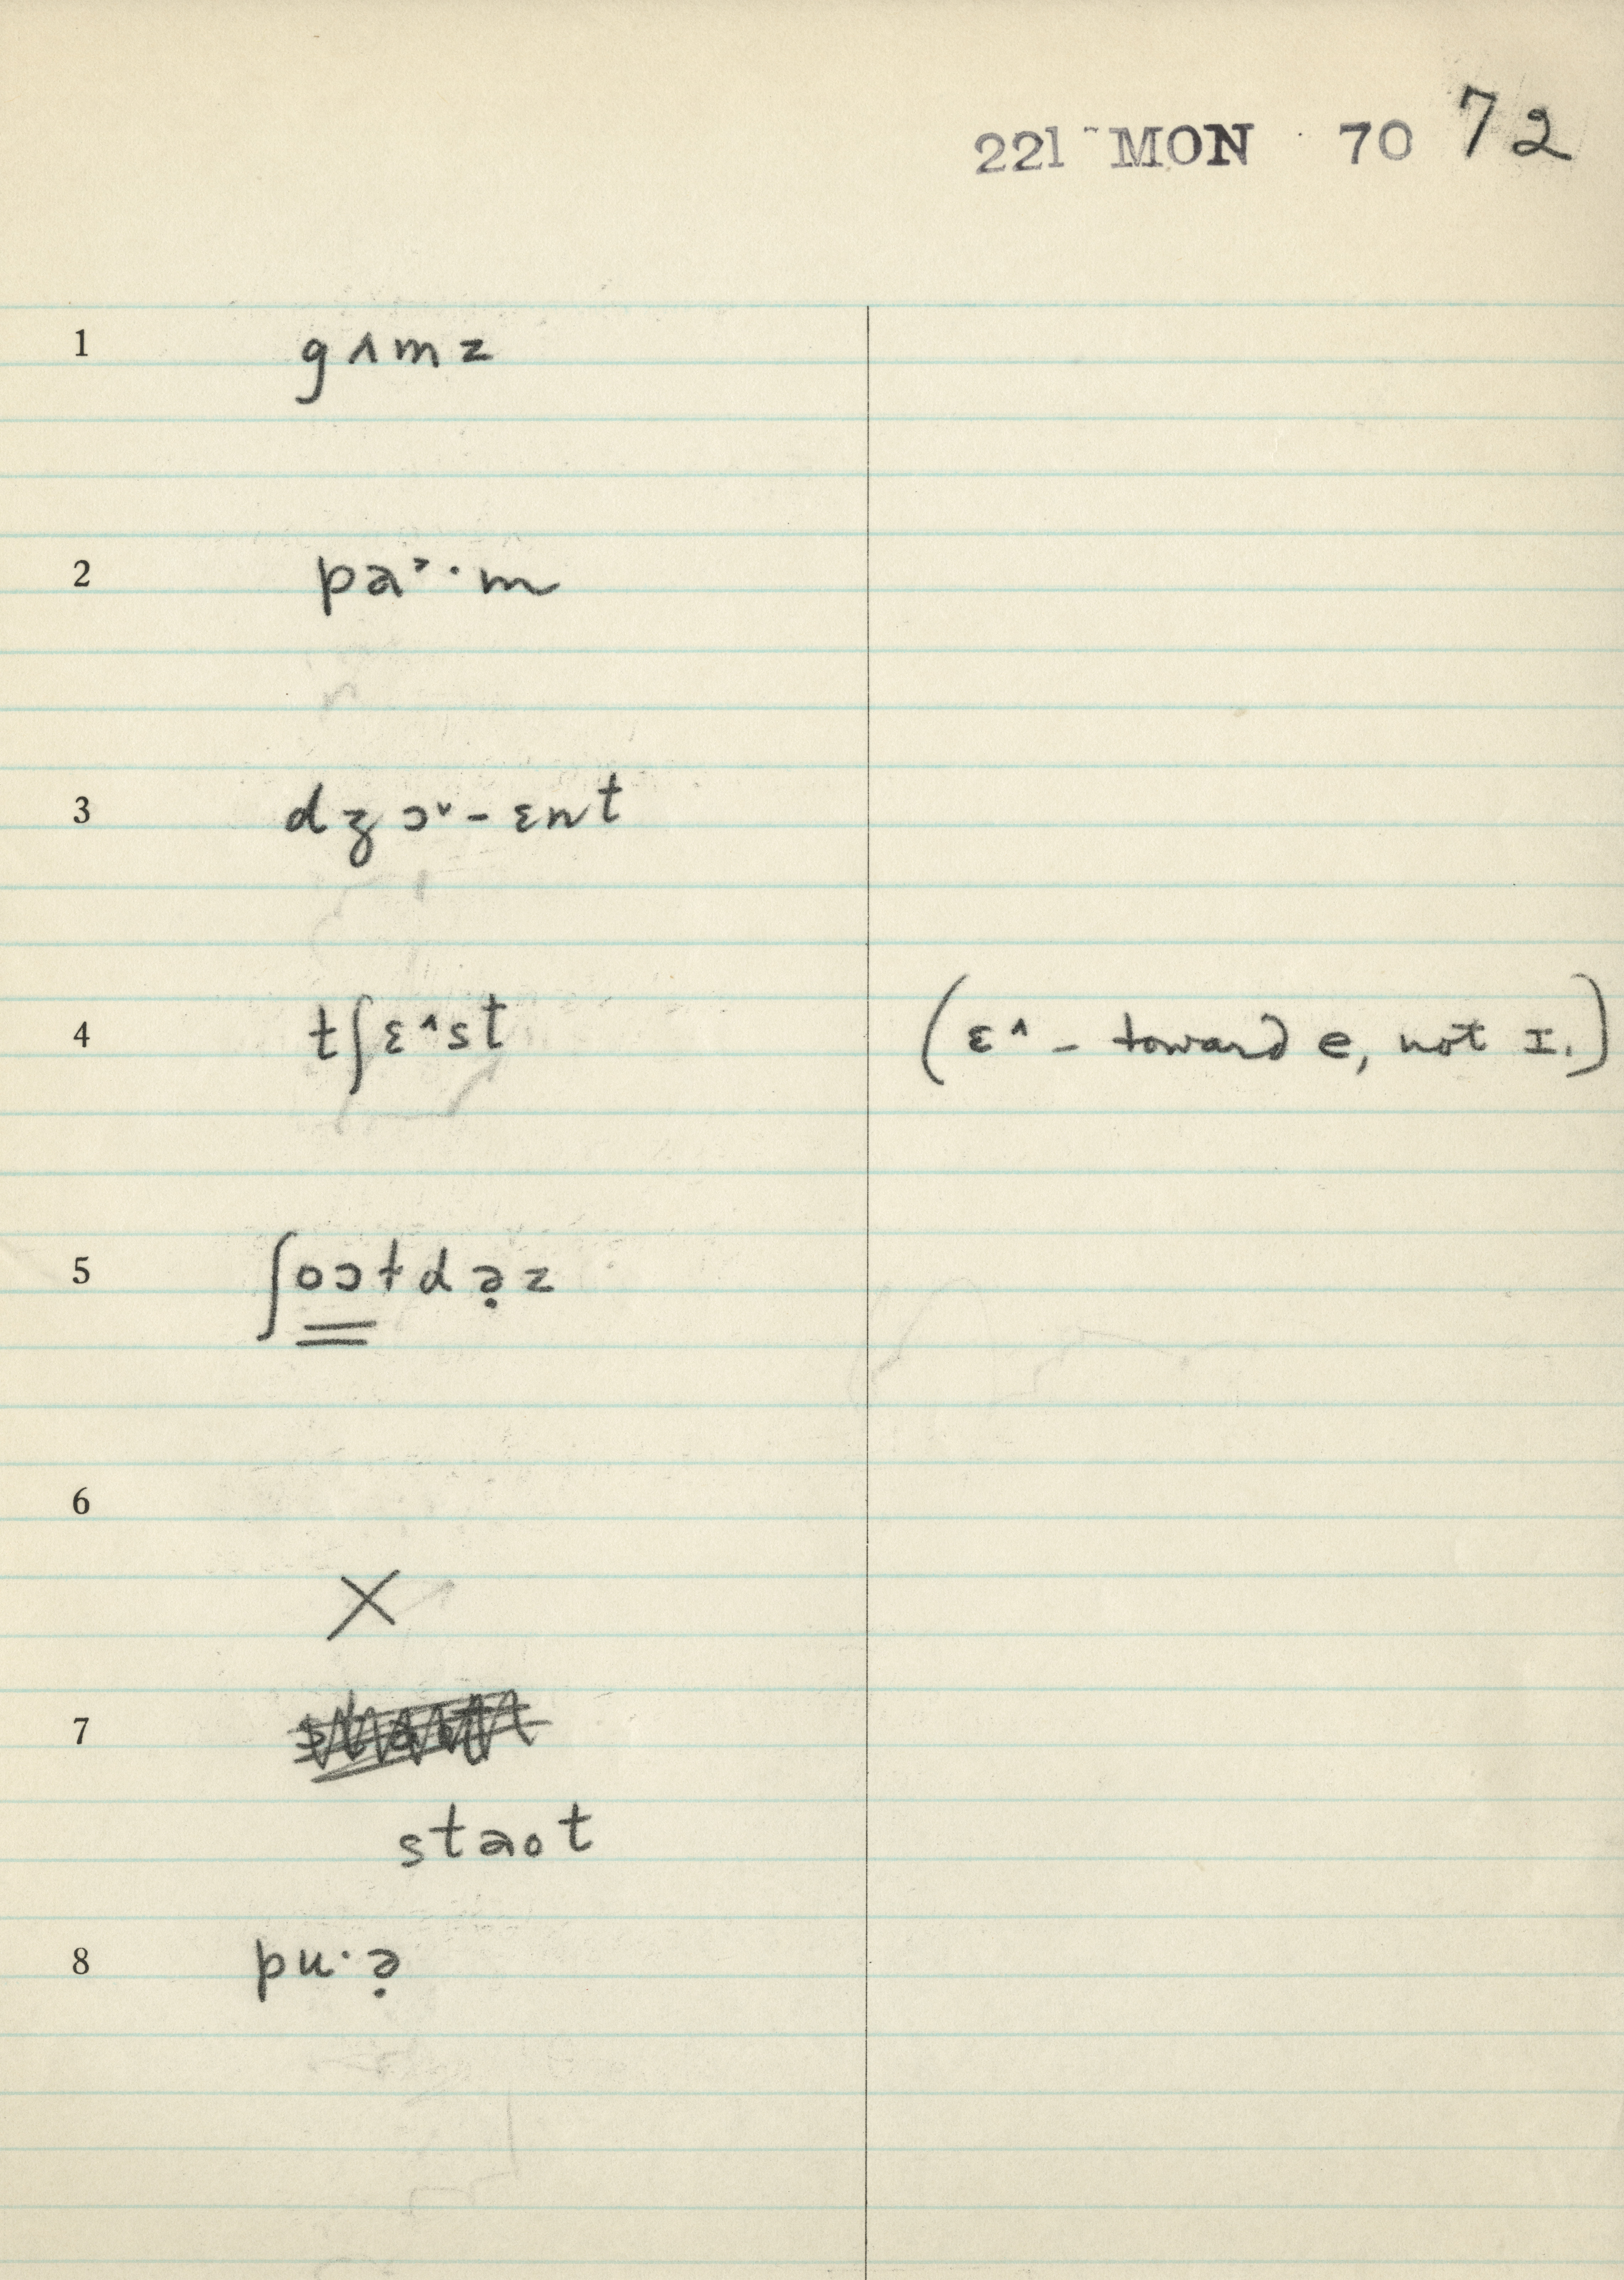 221 MON 70 72
1 gʌmz
2 pa˃·m
3 dʒɔ˅-ɛnt
4 tʃɛ^st (ɛ^ - toward e, not ɪ.)
5 ʃoɔɫdə̣z
6
X
7
staot
8 pu·ə̣